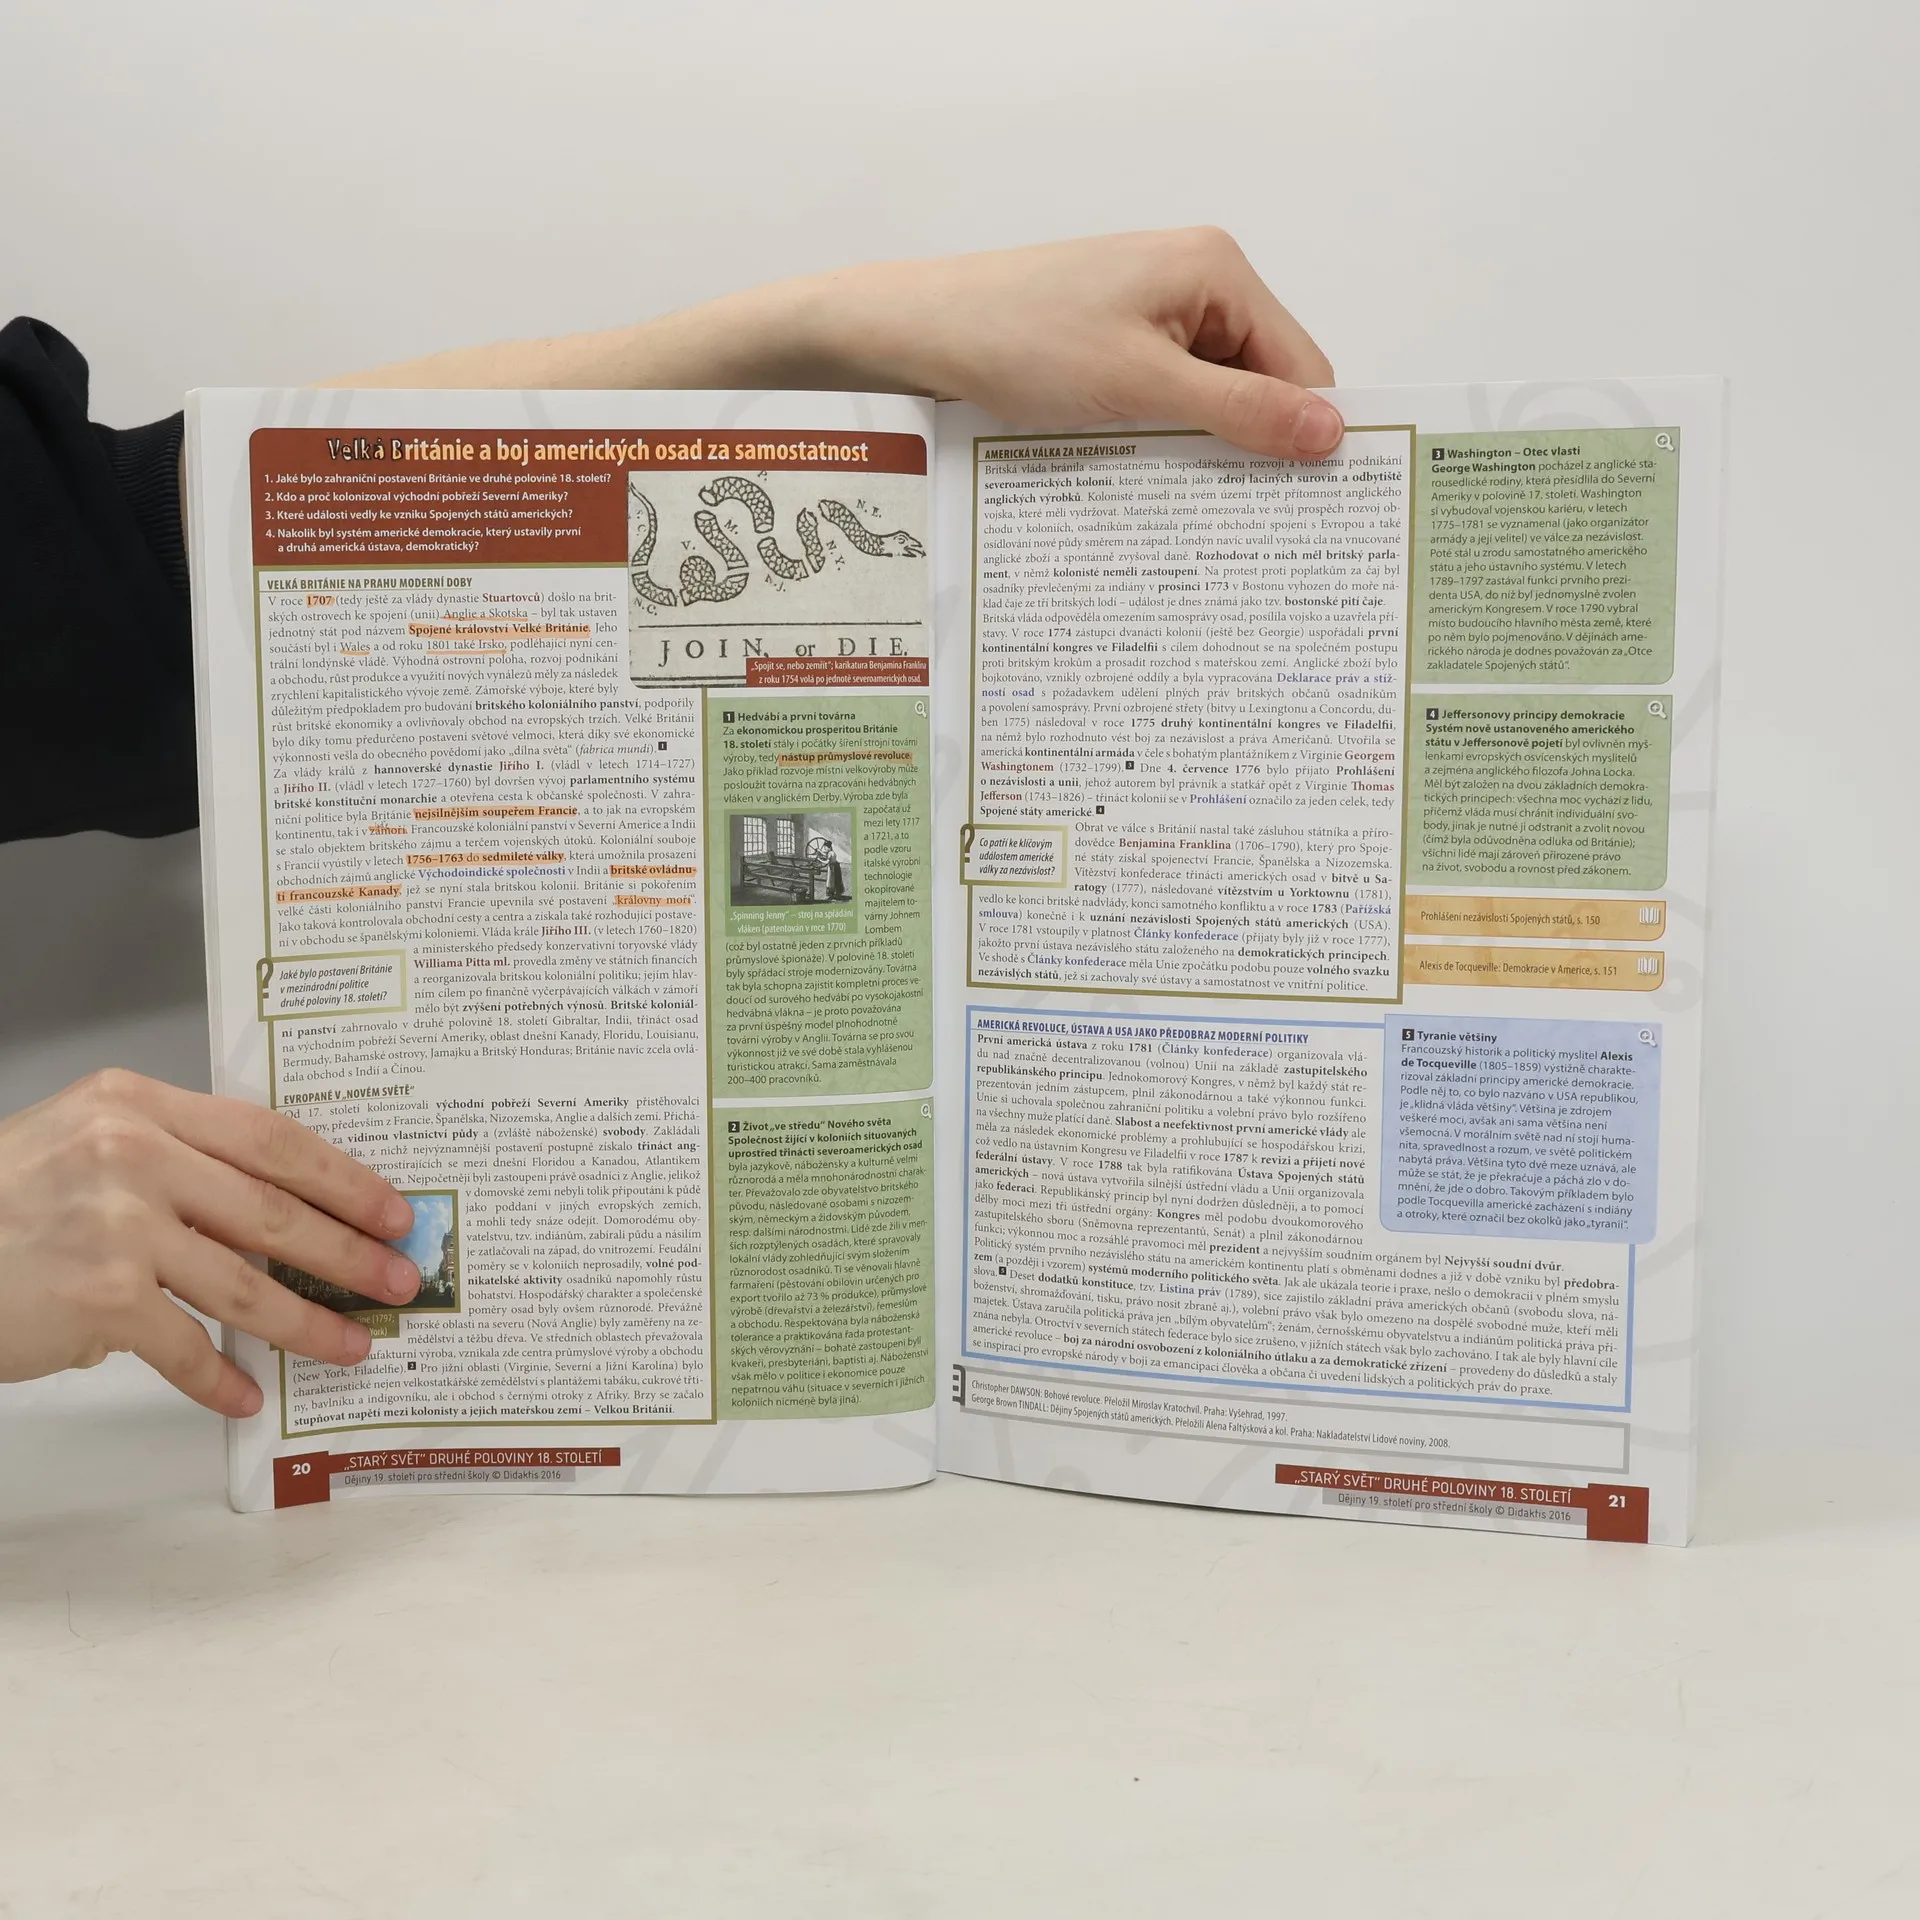 Velká Británie a boj amerických osad za samostatnost
1. Jaké bylo zahraniční postavení Británie ve druhé polovině 18. století?
2. Kdo a proč kolonizoval východní pobřeží Severní Ameriky?
3. Které události vedly ke vzniku Spojených států amerických?
4. Nakolik byl systém americké demokracie, který ustavily první
a druhá americká ústava, demokratický?
S.C.
N.C.
V.
M.
P.
N.J.
N.Y.
N.E.
JOIN, or DIE.
„Spojit se, nebo zemřít“; karikatura Benjamina Franklina
z roku 1754 volá po jednotě severoamerických osad.
VELKÁ BRITÁNIE NA PRAHU MODERNÍ DOBY
V roce 1707 (tedy ještě za vlády dynastie Stuartovců) došlo na brit-
ských ostrovech ke spojení (unii) Anglie a Skotska – byl tak ustaven
jednotný stát pod názvem Spojené království Velké Británie. Jeho
součástí byl i Wales a od roku 1801 také Irsko, podléhající nyní cen-
trální londýnské vládě. Výhodná ostrovní poloha, rozvoj podnikání
a obchodu, růst produkce a využití nových vynálezů měly za následek
zrychlení kapitalistického vývoje země. Zámořské výboje, které byly
důležitým předpokladem pro budování britského koloniálního panství, podpořily
růst britské ekonomiky a ovlivňovaly obchod na evropských trzích. Velké Británii
bylo díky tomu předurčeno postavení světové velmoci, která díky své ekonomické
výkonnosti vešla do obecného povědomí jako „dílna světa“ (fabrica mundi). 1
Za vlády králů z hannoverské dynastie Jiřího I. (vládl v letech 1714–1727)
a Jiřího II. (vládl v letech 1727–1760) byl dovršen vývoj parlamentního systému
britské konstituční monarchie a otevřena cesta k občanské společnosti. V zahra-
niční politice byla Británie nejsilnějším soupeřem Francie, a to jak na evropském
kontinentu, tak i v zámoří. Francouzské koloniální panství v Severní Americe a Indii
se stalo objektem britského zájmu a terčem vojenských útoků. Koloniální souboje
s Francií vyústily v letech 1756–1763 do sedmileté války, která umožnila prosazení
obchodních zájmů anglické Východoindické společnosti v Indii a britské ovládnu-
tí francouzské Kanady, jež se nyní stala britskou kolonií. Británie si pokořením
velké části koloniálního panství Francie upevnila své postavení „královny moří“.
Jako taková kontrolovala obchodní cesty a centra a získala také rozhodující postave-
ní v obchodu se španělskými koloniemi. Vláda krále Jiřího III. (v letech 1760–1820)
a ministerského předsedy konzervativní toryovské vlády
Williama Pitta ml. provedla změny ve státních financích
a reorganizovala britskou koloniální politiku; jejím hlav-
ním cílem po finančně vyčerpávajících válkách v zámoří
mělo být zvýšení potřebných výnosů. Britské koloniál-
ní panství zahrnovalo v druhé polovině 18. století Gibraltar, Indii, třináct osad
na východním pobřeží Severní Ameriky, oblast dnešní Kanady, Floridu, Louisianu,
Bermudy, Bahamské ostrovy, Jamajku a Britský Honduras; Británie navíc zcela ovlá-
dala obchod s Indií a Čínou.
?
Jaké bylo postavení Británie
v mezinárodní politice
druhé poloviny 18. století?
EVROPANÉ V „NOVÉM SVĚTĚ“
Od 17. století kolonizovali východní pobřeží Severní Ameriky přistěhovalci
opy, především z Francie, Španělska, Nizozemska, Anglie a dalších zemí. Přichá-
za vidinou vlastnictví půdy a (zvláště náboženské) svobody. Zakládali
dla, z nichž nejvýznamnější postavení postupně získalo třináct ang-
ozprostírajících se mezi dnešní Floridou a Kanadou, Atlantikem
ím. Nejpočetněji byli zastoupeni právě osadníci z Anglie, jelikož
v domovské zemi nebyli tolik připoutáni k půdě
jako poddaní v jiných evropských zemích,
a mohli tedy snáze odejít. Domorodému oby-
vatelstvu, tzv. indiánům, zabírali půdu a násilím
je zatlačovali na západ, do vnitrozemí. Feudální
poměry se v koloniích neprosadily, volné pod-
nikatelské aktivity osadníků napomohly růstu
bohatství. Hospodářský charakter a společenské
poměry osad byly ovšem různorodé. Převážně
horské oblasti na severu (Nová Anglie) byly zaměřeny na ze-
mědělství a těžbu dřeva. Ve středních oblastech převažovala
řemesl nufakturní výroba, vznikala zde centra průmyslové výroby a obchodu
(New York, Filadelfie). 2 Pro jižní oblasti (Virginie, Severní a Jižní Karolína) bylo
charakteristické nejen velkostatkářské zemědělství s plantážemi tabáku, cukrové třti-
ny, bavlníku a indigovníku, ale i obchod s černými otroky z Afriky. Brzy se začalo
stupňovat napětí mezi kolonisty a jejich mateřskou zemí – Velkou Británií.
(1797;
York)
1 Hedvábí a první továrna
Za ekonomickou prosperitou Británie
18. století stály i počátky šíření strojní tovární
výroby, tedy nástup průmyslové revoluce.
Jako příklad rozvoje místní velkovýroby může
posloužit továrna na zpracování hedvábných
vláken v anglickém Derby. Výroba zde byla
započata už
mezi lety 1717
a 1721, a to
podle vzoru
italské výrobní
technologie
okopírované
majitelem to-
várny Johnem
Lombem
„Spinning Jenny“ – stroj na spřádání
vláken (patentován v roce 1770)
(což byl ostatně jeden z prvních příkladů
průmyslové špionáže). V polovině 18. století
byly spřádací stroje modernizovány. Továrna
tak byla schopna zajistit kompletní proces ve-
doucí od surového hedvábí po vysokojakostní
hedvábná vlákna – je proto považována
za první úspěšný model plnohodnotné
tovární výroby v Anglii. Továrna se pro svou
výkonnost již ve své době stala vyhlášenou
turistickou atrakcí. Sama zaměstnávala
200–400 pracovníků.
2 Život „ve středu“ Nového světa
Společnost žijící v koloniích situovaných
uprostřed třinácti severoamerických osad
byla jazykově, nábožensky a kulturně velmi
různorodá a měla mnohonárodnostní charak-
ter. Převažovalo zde obyvatelstvo britského
původu, následované osobami s nizozem-
ským, německým a židovským původem,
resp. dalšími národnostmi. Lidé zde žili v men-
ších rozptýlených osadách, které spravovaly
lokální vlády zohledňující svým složením
různorodost osadníků. Ti se věnovali hlavně
farmaření (pěstování obilovin určených pro
export tvořilo až 73 % produkce), průmyslové
výrobě (dřevařství a železářství), řemeslům
a obchodu. Respektována byla náboženská
tolerance a praktikována řada protestant-
ských věrovyznání – bohatě zastoupeni byli
kvakeři, presbyteriáni, baptisti aj. Náboženství
však mělo v politice i ekonomice pouze
nepatrnou váhu (situace v severních i jižních
koloniích nicméně byla jiná).
20
„STARÝ SVĚT“ DRUHÉ POLOVINY 18. STOLETÍ
Dějiny 19. století pro střední školy © Didaktis 2016
AMERICKÁ VÁLKA ZA NEZÁVISLOST
Britská vláda bránila samostatnému hospodářskému rozvoji a volnému podnikání
severoamerických kolonií, které vnímala jako zdroj laciných surovin a odbytiště
anglických výrobků. Kolonisté museli na svém území trpět přítomnost anglického
vojska, které měli vydržovat. Mateřská země omezovala ve svůj prospěch rozvoj ob-
chodu v koloniích, osadníkům zakázala přímé obchodní spojení s Evropou a také
osídlování nové půdy směrem na západ. Londýn navíc uvalil vysoká cla na vnucované
anglické zboží a spontánně zvyšoval daně. Rozhodovat o nich měl britský parla-
ment, v němž kolonisté neměli zastoupení. Na protest proti poplatkům za čaj byl
osadníky převlečenými za indiány v prosinci 1773 v Bostonu vyhozen do moře ná-
klad čaje ze tří britských lodí – událost je dnes známá jako tzv. bostonské pití čaje.
Britská vláda odpověděla omezením samosprávy osad, posílila vojsko a uzavřela pří-
stavy. V roce 1774 zástupci dvanácti kolonií (ještě bez Georgie) uspořádali první
kontinentální kongres ve Filadelfii s cílem dohodnout se na společném postupu
proti britským krokům a prosadit rozchod s mateřskou zemí. Anglické zboží bylo
bojkotováno, vznikly ozbrojené oddíly a byla vypracována Deklarace práv a stíž-
ností osad s požadavkem udělení plných práv britských občanů osadníkům
a povolení samosprávy. První ozbrojené střety (bitvy u Lexingtonu a Concordu, du-
ben 1775) následoval v roce 1775 druhý kontinentální kongres ve Filadelfii,
na němž bylo rozhodnuto vést boj za nezávislost a práva Američanů. Utvořila se
americká kontinentální armáda v čele s bohatým plantážníkem z Virginie Georgem
Washingtonem (1732–1799). 3 Dne 4. července 1776 bylo přijato Prohlášení
o nezávislosti a unii, jehož autorem byl právník a statkář opět z Virginie Thomas
Jefferson (1743–1826) – třináct kolonií se v Prohlášení označilo za jeden celek, tedy
Spojené státy americké. 4
?
Co patří ke klíčovým
událostem americké
války za nezávislost?
Obrat ve válce s Británií nastal také zásluhou státníka a příro-
dovědce Benjamina Franklina (1706–1790), který pro Spoje-
né státy získal spojenectví Francie, Španělska a Nizozemska.
Vítězství konfederace třinácti amerických osad v bitvě u Sa-
ratogy (1777), následované vítězstvím u Yorktownu (1781),
vedlo ke konci britské nadvlády, konci samotného konfliktu a v roce 1783 (Pařížská
smlouva) konečně i k uznání nezávislosti Spojených států amerických (USA).
V roce 1781 vstoupily v platnost Články konfederace (přijaty byly již v roce 1777),
jakožto první ústava nezávislého státu založeného na demokratických principech.
Ve shodě s Články konfederace měla Unie zpočátku podobu pouze volného svazku
nezávislých států, jež si zachovaly své ústavy a samostatnost ve vnitřní politice.
3 Washington – Otec vlasti
George Washington pocházel z anglické sta-
rousedlické rodiny, která přesídlila do Severní
Ameriky v polovině 17. století. Washington
si vybudoval vojenskou kariéru, v letech
1775–1781 se vyznamenal (jako organizátor
armády a její velitel) ve válce za nezávislost.
Poté stál u zrodu samostatného amerického
státu a jeho ústavního systému. V letech
1789–1797 zastával funkci prvního prezi-
denta USA, do níž byl jednomyslně zvolen
americkým Kongresem. V roce 1790 vybral
místo budoucího hlavního města země, které
po něm bylo pojmenováno. V dějinách ame-
rického národa je dodnes považován za „Otce
zakladatele Spojených států“.
4 Jeffersonovy principy demokracie
Systém nově ustanoveného amerického
státu v Jeffersonově pojetí byl ovlivněn myš-
lenkami evropských osvícenských myslitelů
a zejména anglického filozofa Johna Locka.
Měl být založen na dvou základních demokra-
tických principech: všechna moc vychází z lidu,
přičemž vláda musí chránit individuální svo-
body, jinak je nutné ji odstranit a zvolit novou
(čímž byla odůvodněna odluka od Británie);
všichni lidé mají zároveň přirozené právo
na život, svobodu a rovnost před zákonem.
Prohlášení nezávislosti Spojených států, s. 150
Alexis de Tocqueville: Demokracie v Americe, s. 151
AMERICKÁ REVOLUCE, ÚSTAVA A USA JAKO PŘEDOBRAZ MODERNÍ POLITIKY
První americká ústava z roku 1781 (Články konfederace) organizovala vlá-
du nad značně decentralizovanou (volnou) Unií na základě zastupitelského
republikánského principu. Jednokomorový Kongres, v němž byl každý stát re-
prezentován jedním zástupcem, plnil zákonodárnou a také výkonnou funkci.
Unie si uchovala společnou zahraniční politiku a volební právo bylo rozšířeno
na všechny muže platící daně. Slabost a neefektivnost první americké vlády ale
měla za následek ekonomické problémy a prohlubující se hospodářskou krizi,
což vedlo na ústavním Kongresu ve Filadelfii v roce 1787 k revizi a přijetí nové
federální ústavy. V roce 1788 tak byla ratifikována Ústava Spojených států
amerických – nová ústava vytvořila silnější ústřední vládu a Unii organizovala
jako federaci. Republikánský princip byl nyní dodržen důsledněji, a to pomocí
dělby moci mezi tři ústřední orgány: Kongres měl podobu dvoukomorového
zastupitelského sboru (Sněmovna reprezentantů, Senát) a plnil zákonodárnou
funkci; výkonnou moc a rozsáhlé pravomoci měl prezident a nejvyšším soudním orgánem byl Nejvyšší soudní dvůr.
Politický systém prvního nezávislého státu na americkém kontinentu platí s obměnami dodnes a již v době vzniku byl předobra-
zem (a později i vzorem) systémů moderního politického světa. Jak ale ukázala teorie i praxe, nešlo o demokracii v plném smyslu
slova. 5 Deset dodatků konstituce, tzv. Listina práv (1789), sice zajistilo základní práva amerických občanů (svobodu slova, ná-
boženství, shromažďování, tisku, právo nosit zbraně aj.), volební právo však bylo omezeno na dospělé svobodné muže, kteří měli
majetek. Ústava zaručila politická práva jen „bílým obyvatelům“; ženám, černošskému obyvatelstvu a indiánům politická práva při-
znána nebyla. Otroctví v severních státech federace bylo sice zrušeno, v jižních státech však bylo zachováno. I tak ale byly hlavní cíle
americké revoluce – boj za národní osvobození z koloniálního útlaku a za demokratické zřízení – provedeny do důsledků a staly
se inspirací pro evropské národy v boji za emancipaci člověka a občana či uvedení lidských a politických práv do praxe.
5 Tyranie většiny
Francouzský historik a politický myslitel Alexis
de Tocqueville (1805–1859) výstižně charakte-
rizoval základní principy americké demokracie.
Podle něj to, co bylo nazváno v USA republikou,
je „klidná vláda většiny“. Většina je zdrojem
veškeré moci, avšak ani sama většina není
všemocná. V morálním světě nad ní stojí huma-
nita, spravedlnost a rozum, ve světě politickém
nabytá práva. Většina tyto dvě meze uznává, ale
může se stát, že je překračuje a páchá zlo v do-
mnění, že jde o dobro. Takovým příkladem bylo
podle Tocquevilla americké zacházení s indiány
a otroky, které označil bez okolků jako „tyranii“.
Christopher DAWSON: Bohové revoluce. Přeložil Miroslav Kratochvíl. Praha: Vyšehrad, 1997.
George Brown TINDALL: Dějiny Spojených států amerických. Přeložili Alena Faltýsková a kol. Praha: Nakladatelství Lidové noviny, 2008.
„STARÝ SVĚT“ DRUHÉ POLOVINY 18. STOLETÍ
Dějiny 19. století pro střední školy © Didaktis 2016
21